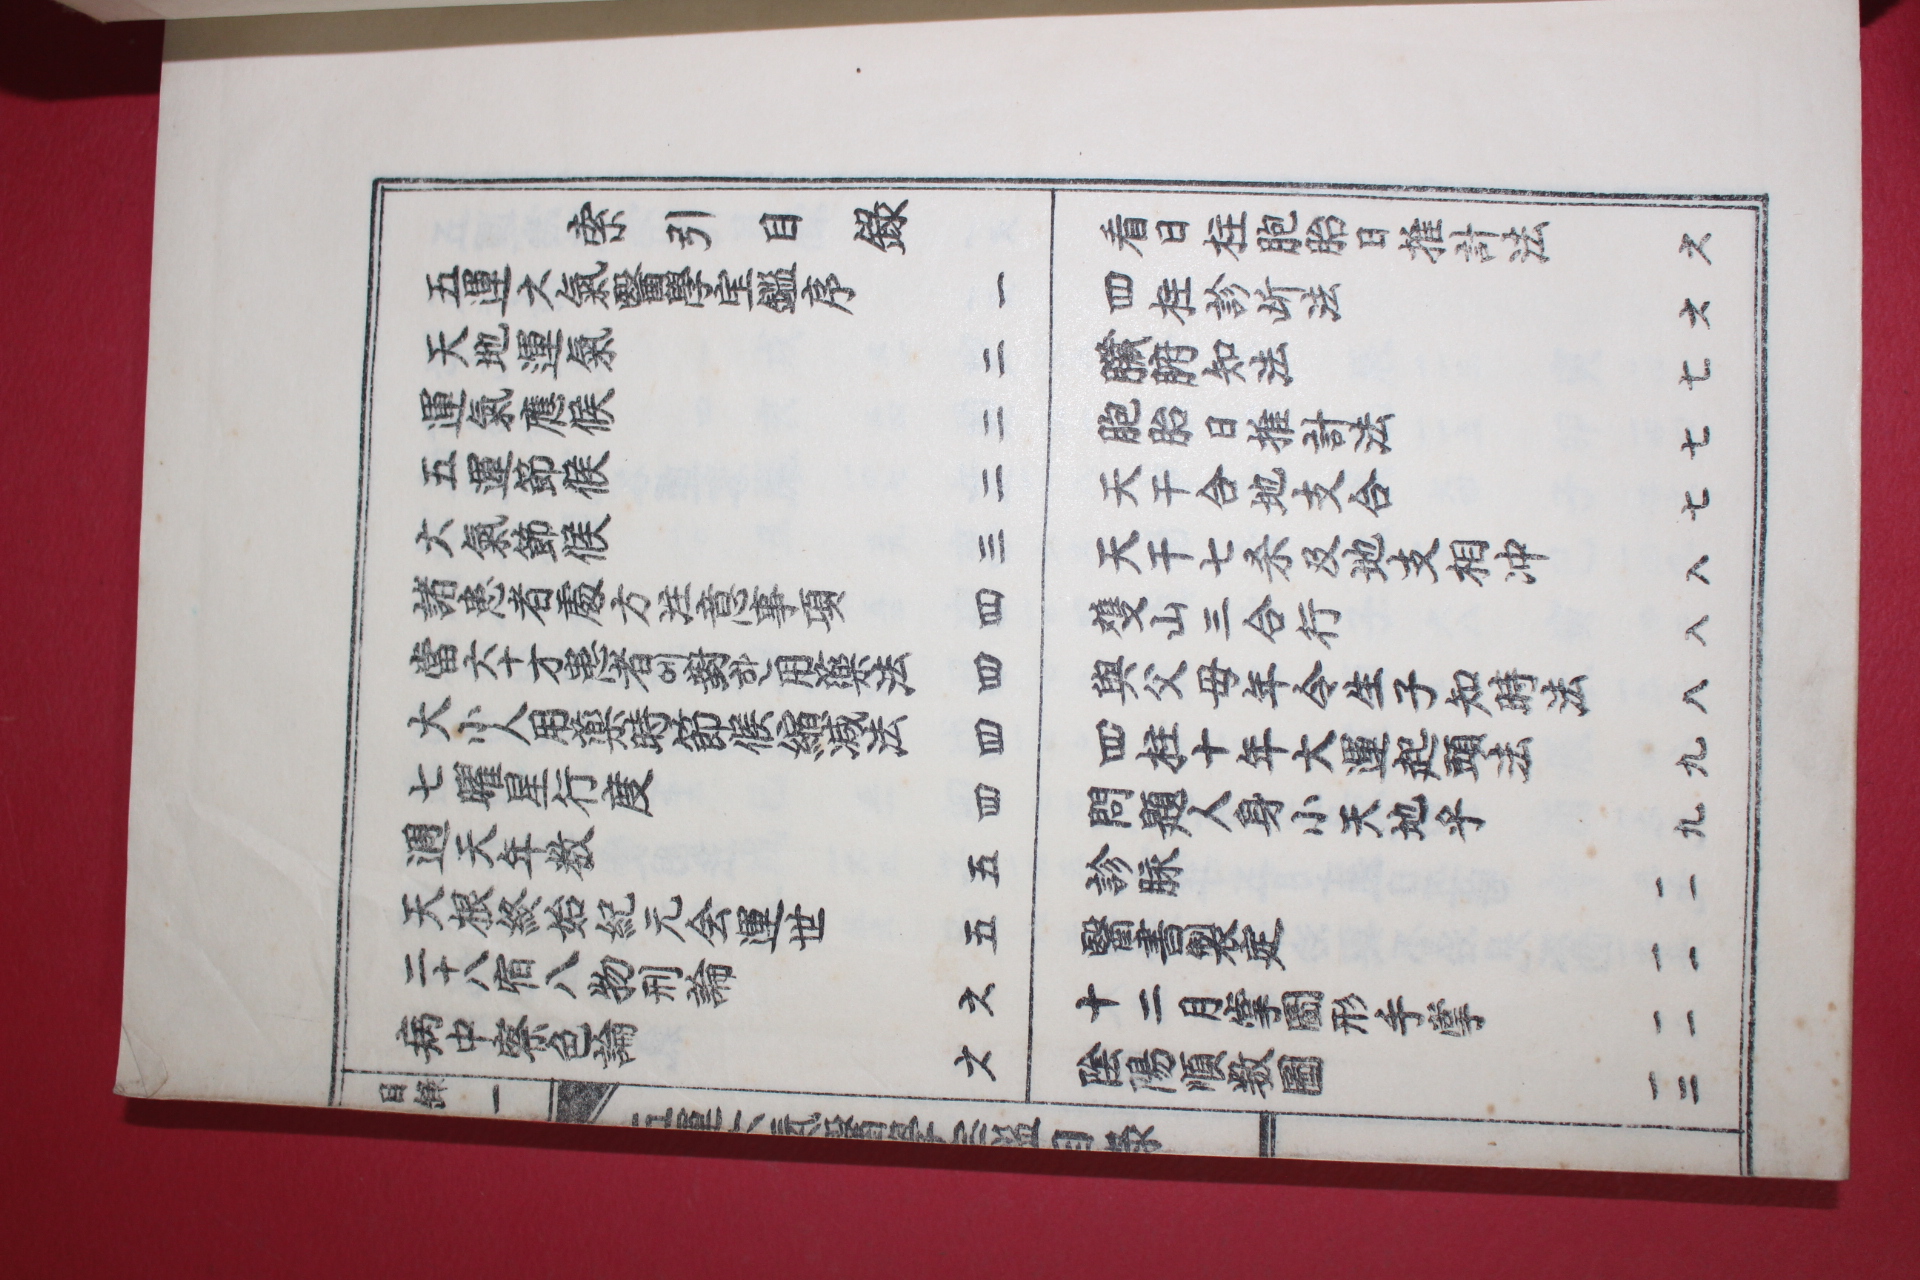 索引目錄
五運六氣醫學宝鑑序 一
天地運氣 二
運氣應候 二
五運節候 二
六氣節候 三
諸患者處方注意事項 四
當六十才患者에對한用藥法 四
大小人用藥時節候縮减法 四
七曜星行度 四
週天年数 五
天根終始紀元会運世 五
二十八宿八物刑論 六
病中察色論 六
看日柱胞胎日推計法 六
四柱診断法 六
臟腑知法 七
胞胎日推計法 七
天干合地支合 七
天干七杀及地支相冲 八
雙山三合行 八
與父母年令生子知時法 八
四柱十年大運起頭法 九
問題人身小天地乎 九
診脉 一一
醫書製定 一一
十二月掌圖形手掌 一一
陰陽順数圖 一二
目錄 一
五運六氣醫學宝鑑目錄